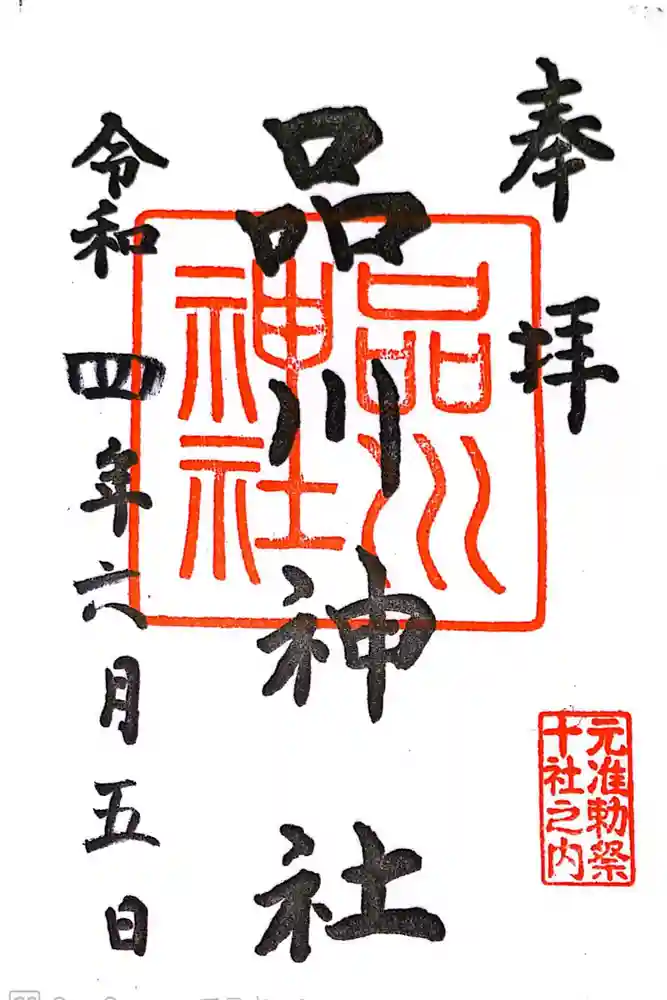 奉拝
品川神社
令和四年六月五日
品川
神社
元准勅祭
十社之内